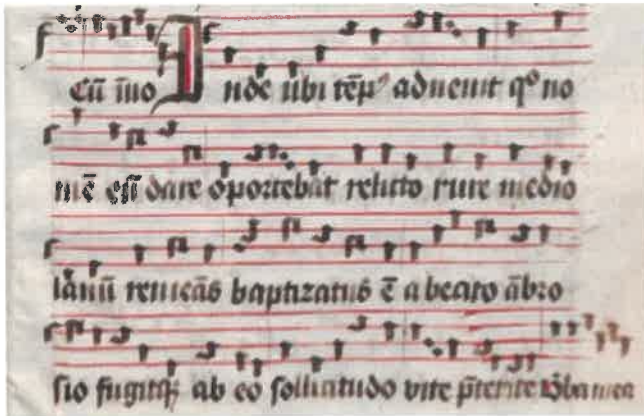 cū īuo Inde ubi tēpꝰ aduenit qͦ no
mē eſſ dare oportebat relicto rure medio
lanū remeās baptizatus ē a beato ābro
ſio fugitqꝫ ab eo ſollicitudo vite p̄terite v̄ba mea